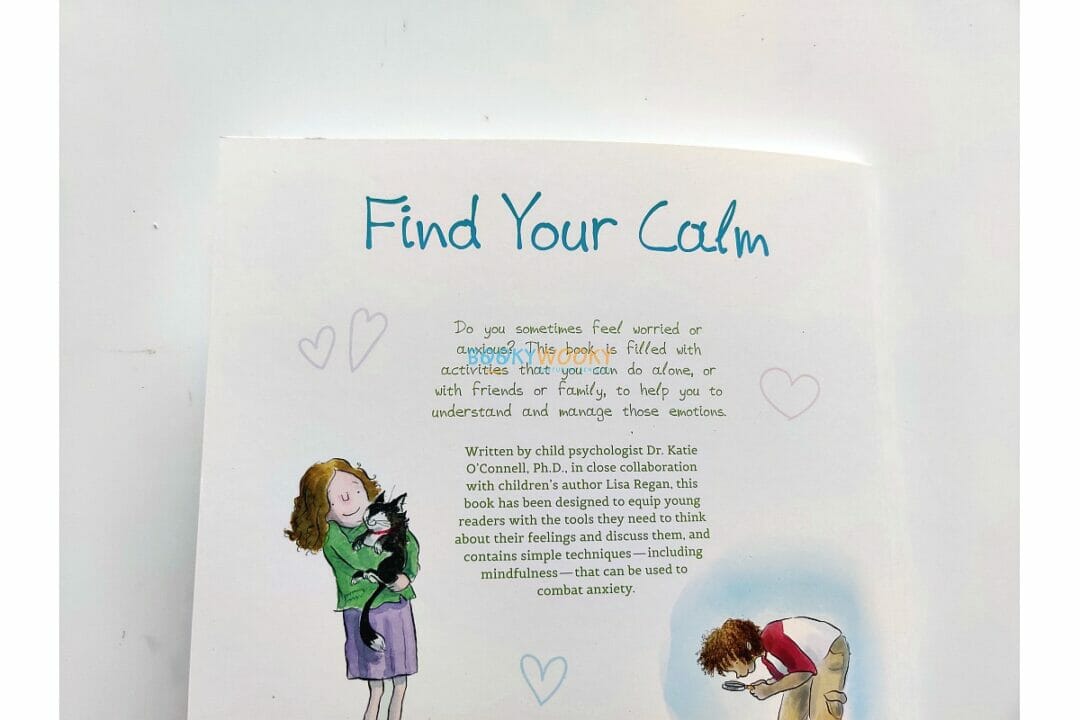 Find Your Calm
Do you sometimes feel worried or
anxious? This book is filled with
BOOKYWOOKY
activities that you can do alone, or
with friends or family, to help you to
understand and manage those emotions.
Written by child psychologist Dr. Katie
O'Connell, Ph.D., in close collaboration
with children's author Lisa Regan, this
book has been designed to equip young
readers with the tools they need to think
about their feelings and discuss them, and
contains simple techniques—including
mindfulness—that can be used to
combat anxiety.